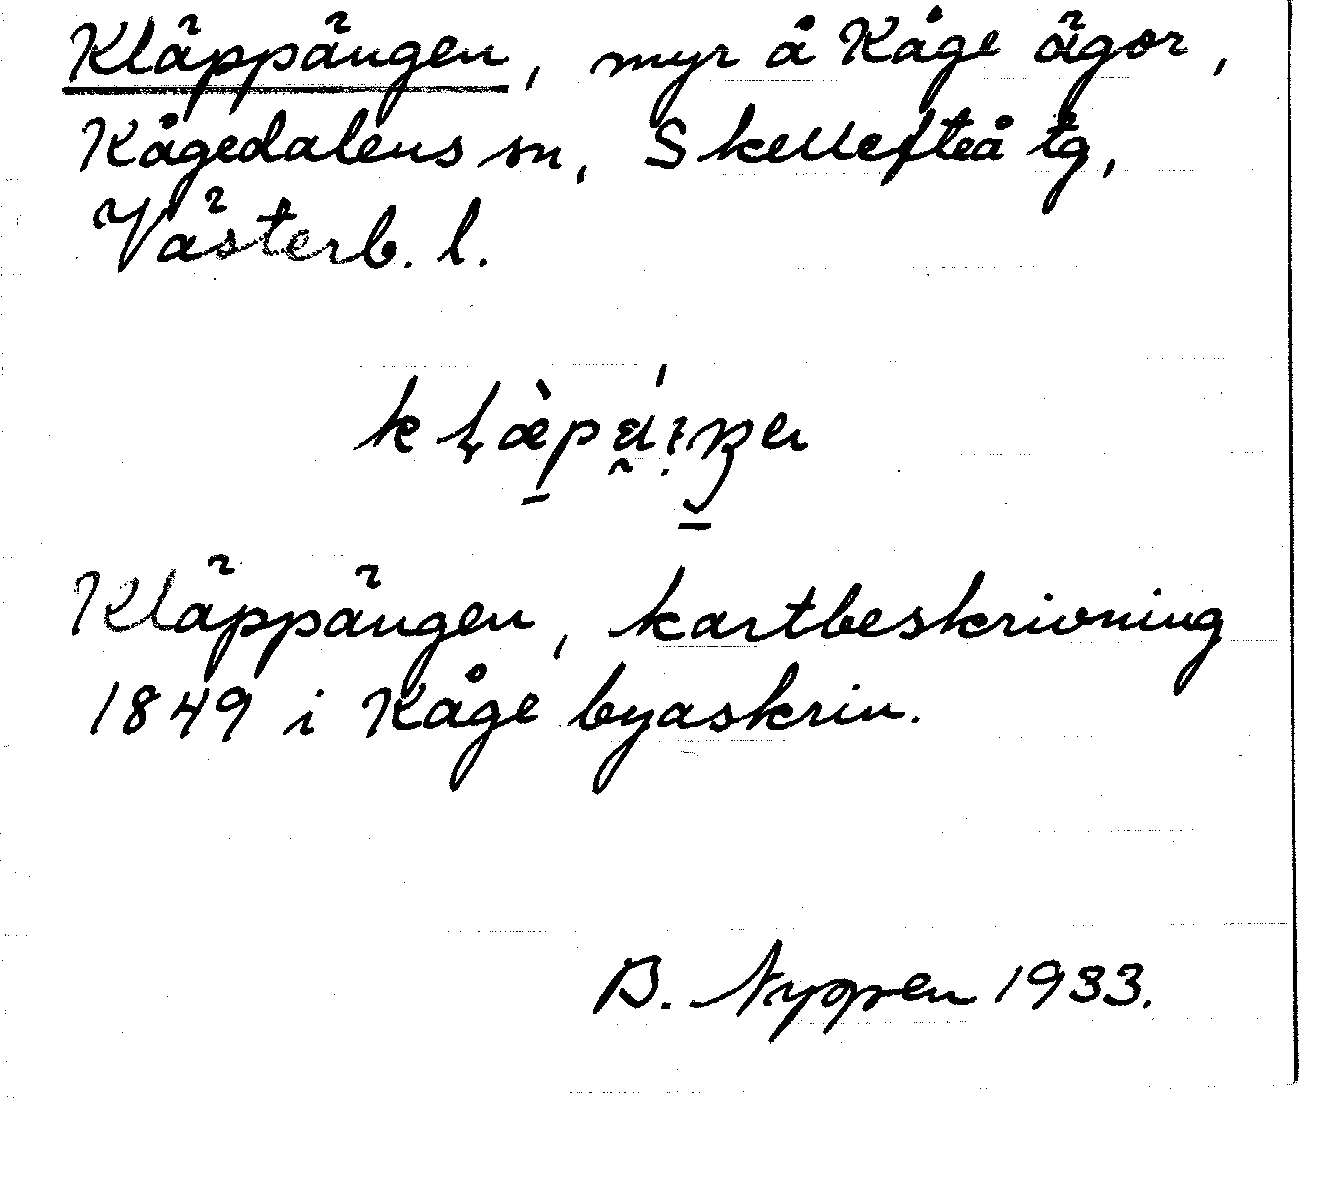 Kläppängen, myr å Kåge ägor,
Kågedalens sn, Skellefteå tg,
Västerb. l.
Kläppängen, kartbeskrivning
1849 i Kåge byaskrin.
B. Nyppen 1933.